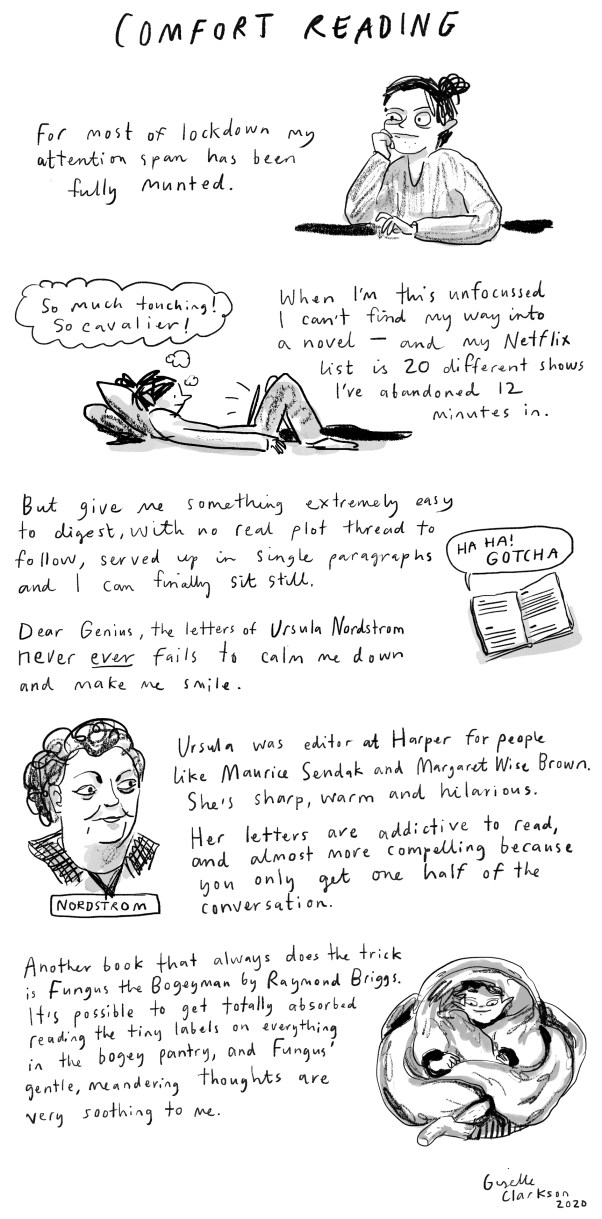 COMFORT READING
For most of lockdown my
attention span has been
fully munted.
So much touching!
So cavalier!
When I'm this unfocussed
I can't find my way into
a novel — and my Netflix
list is 20 different shows
I've abandoned 12
minutes in.
But give me something extremely easy
to digest, with no real plot thread to
follow, served up in single paragraphs
and I can finally sit still.
HA HA!
GOTCHA
Dear Genius, the letters of Ursula Nordstrom
never ever fails to calm me down
and make me smile.
Ursula was editor at Harper for people
like Maurice Sendak and Margaret Wise Brown.
She's sharp, warm and hilarious.
Her letters are addictive to read,
and almost more compelling because
you only get one half of the
conversation.
NORDSTROM
Another book that always does the trick
is Fungus the Bogeyman by Raymond Briggs.
It's possible to get totally absorbed
reading the tiny labels on everything
in the bogey pantry, and Fungus'
gentle, meandering thoughts are
very soothing to me.
Giselle
Clarkson
2020